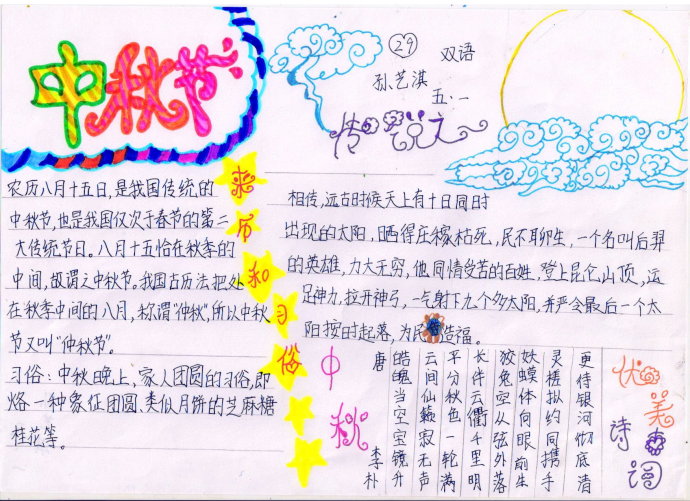 中秋节
29
双语
孙艺淇
五.一
传说文
来历和习俗
农历八月十五日,是我国传统的
中秋节,也是我国仅次于春节的第二
大传统节日。八月十五恰在秋季的
中间,故谓之中秋节。我国古历法把处
在秋季中间的八月,称谓"仲秋",所以中秋
节又叫"仲秋节"。
习俗:中秋晚上,家人团圆的习俗,即
烙一种象征团圆、类似月饼的芝麻糖
桂花等。
相传,远古时候天上有十日同时
出现的太阳,晒得庄稼枯死,民不聊生,一个名叫后羿
的英雄,力大无穷,他同情受苦的百姓,登上昆仑山顶,运
足神九,拉开神弓,一气射下九个多太阳,并严令最后一个太
阳按时起落,为民造福。
优美诗词
更待银河彻底清
灵槎拟约同携手
妖蟆休向眼前生
狡兔空从弦外落
长伴云衢千里明
平分秋色一轮满
云间仙籁寂无声
皓魄当空宝镜升
唐 李朴
中秋